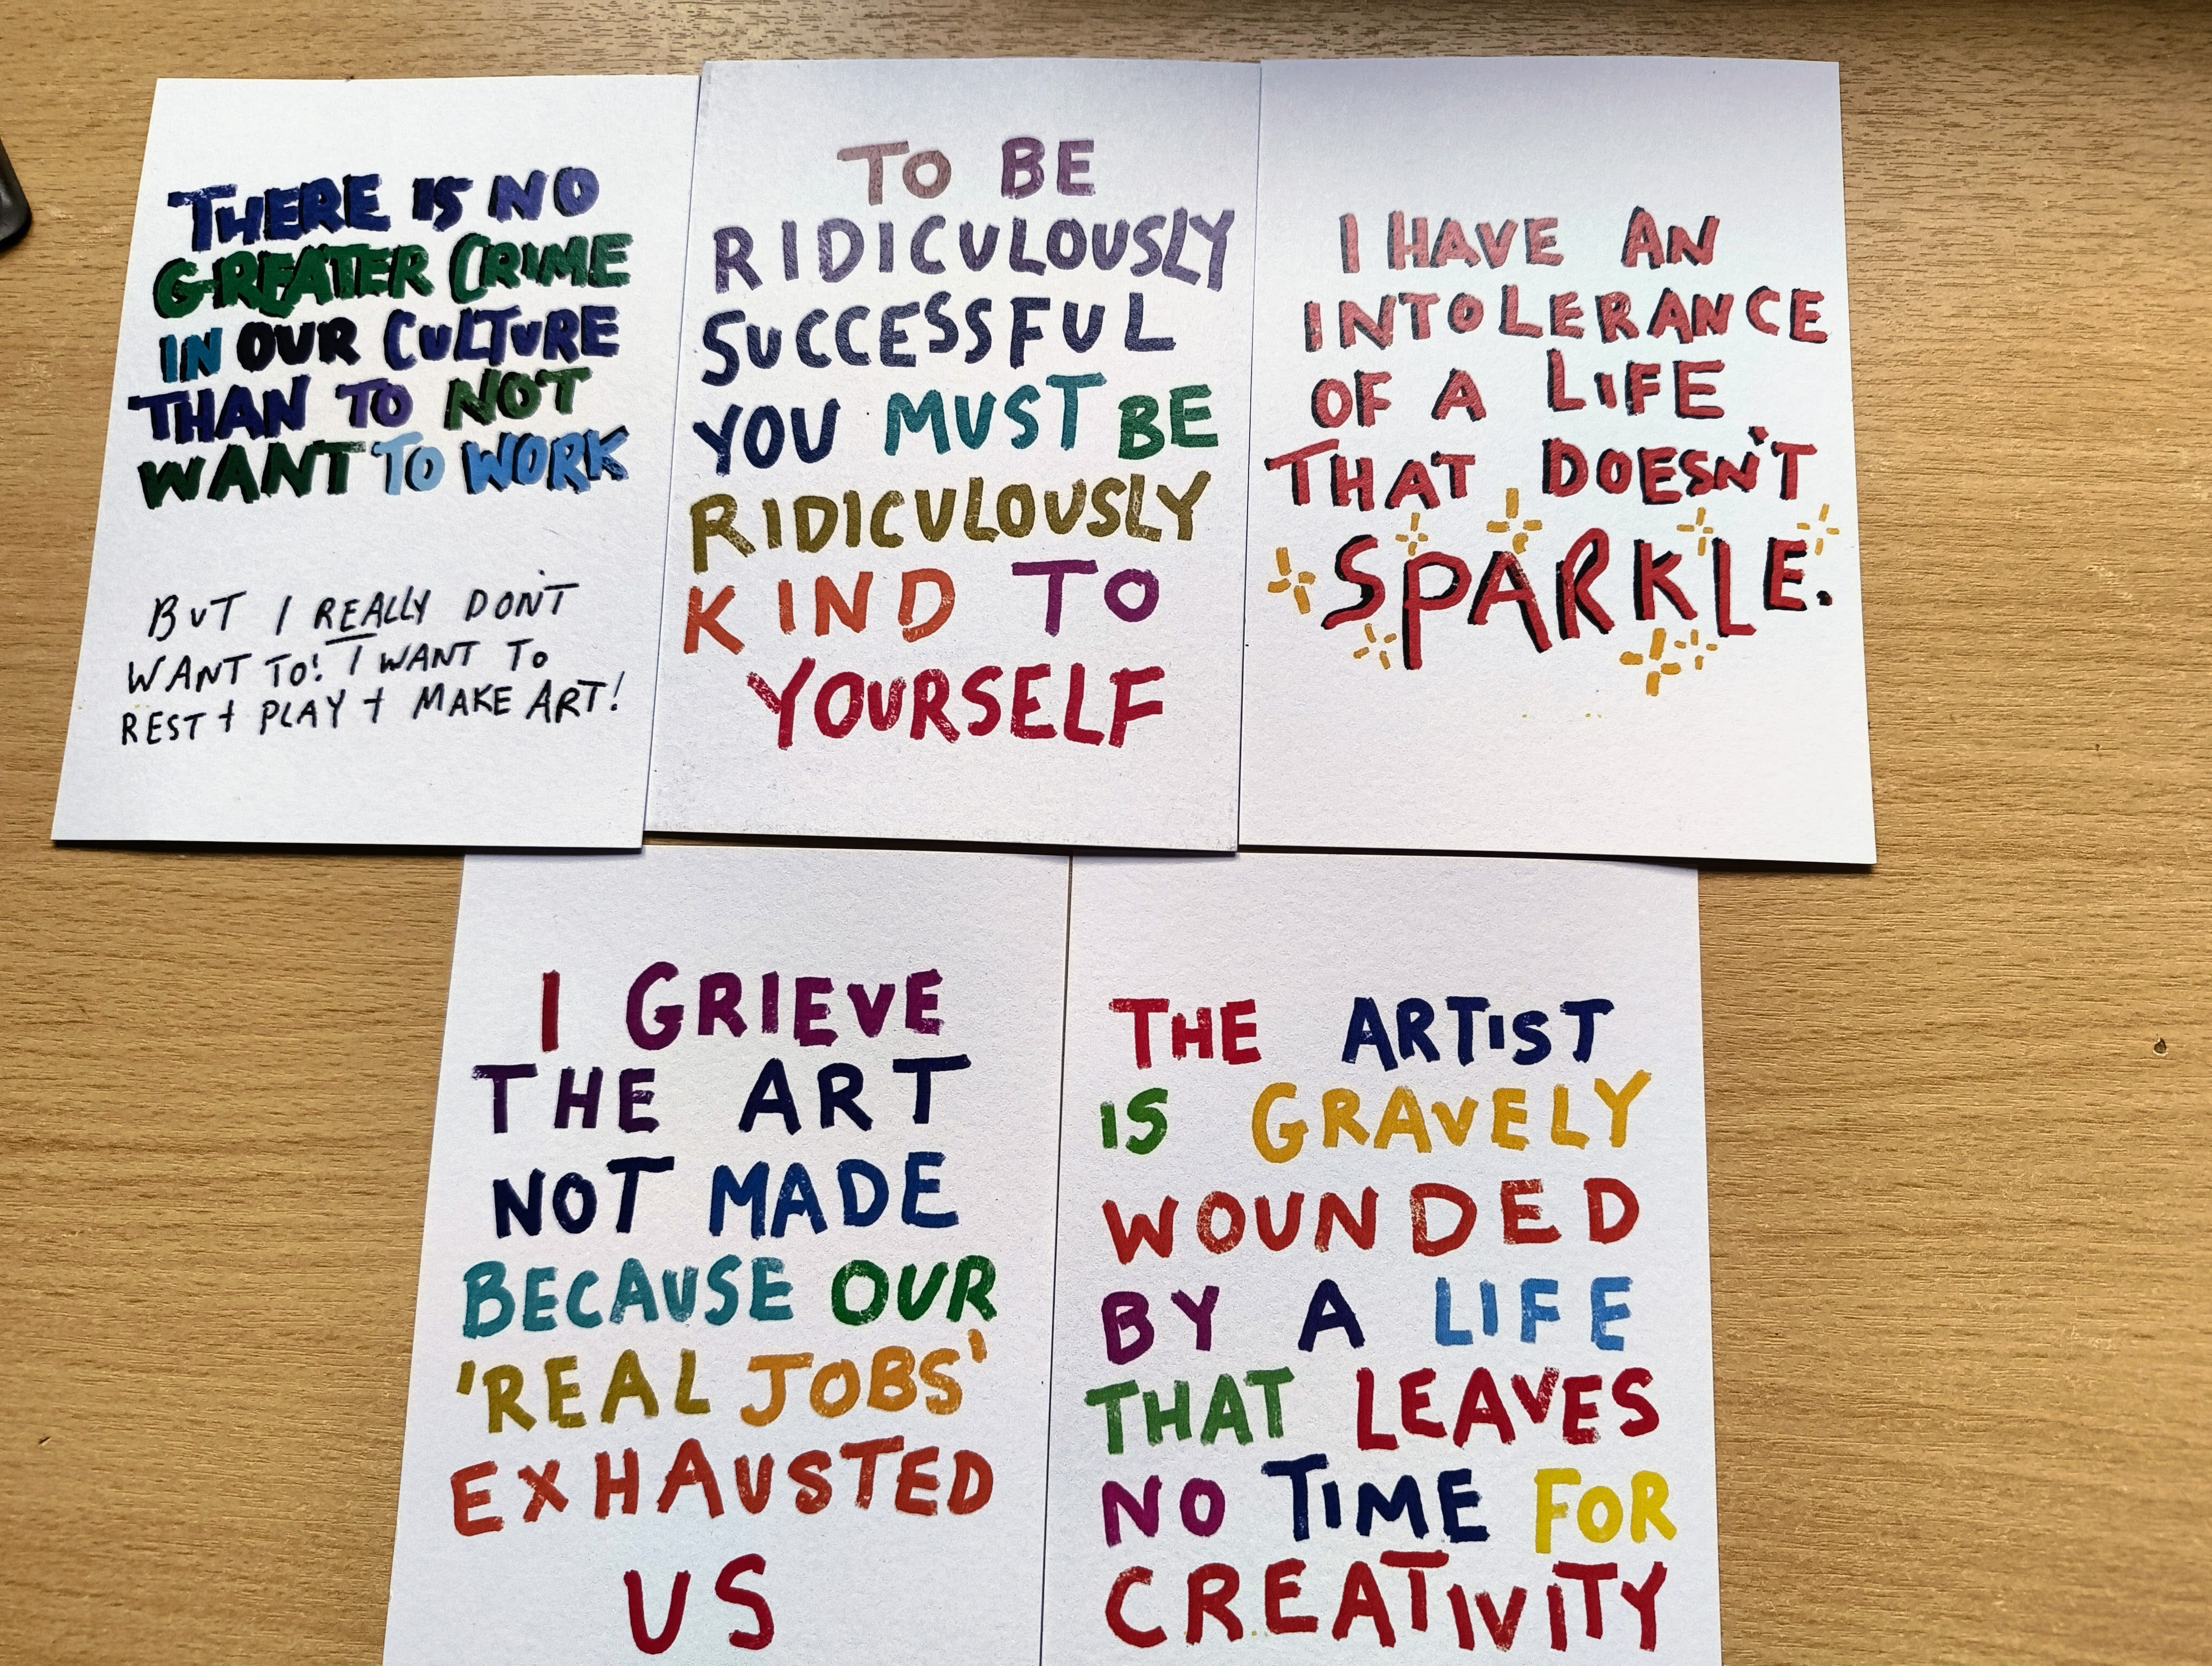 THERE IS NO
GREATER CRIME
IN OUR CULTURE
THAN TO NOT
WANT TO WORK
BUT I REALLY DON'T
WANT TO! I WANT TO
REST + PLAY + MAKE ART!
TO BE
RIDICULOUSLY
SUCCESSFUL
YOU MUST BE
RIDICULOUSLY
KIND TO
YOURSELF
I HAVE AN
INTOLERANCE
OF A LIFE
THAT DOESN'T
SPARKLE.
I GRIEVE
THE ART
NOT MADE
BECAUSE OUR
'REAL JOBS'
EXHAUSTED
US
THE ARTIST
IS GRAVELY
WOUNDED
BY A LIFE
THAT LEAVES
NO TIME FOR
CREATIVITY